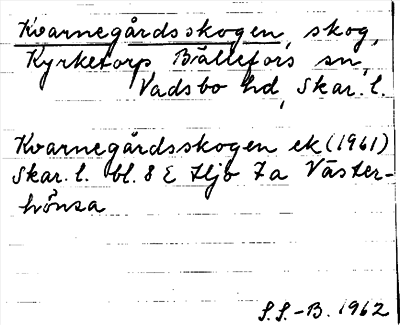 Kvarnegårdsskogen, skog,
Kyrketorp, Bällefors sn,
Vadsbo hd, Skar. l.
Kvarnegårdsskogen ek (1961)
Skar. l. bl. 8 E Hjo 7a Väster-
hönsa
S.S.-B. 1962